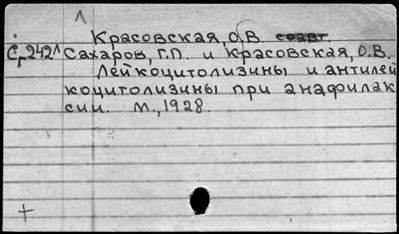 Красовская, О.В. соавт.
С242 Сахаров, Г.П. и Красовская, О.В.
Лейкоцитолизины и антилей
коцитолизины при анафилак
сии. М., 1928.